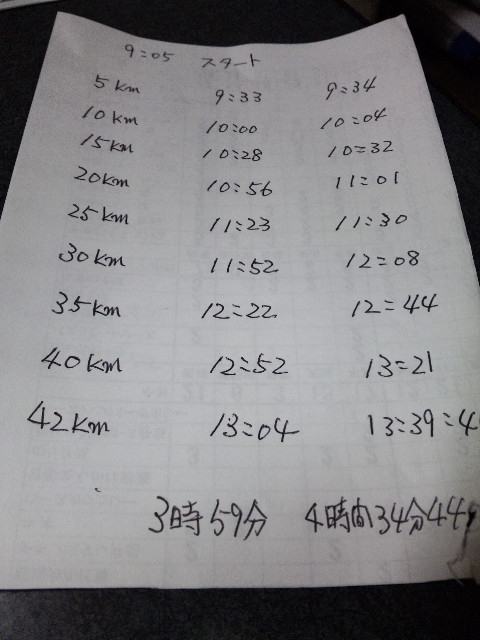 9:05 スタート
5km 9:33 9:34
10km 10:00 10:04
15km 10:28 10:32
20km 10:56 11:01
25km 11:23 11:30
30km 11:52 12:08
35km 12:22 12:44
40km 12:52 13:21
42km 13:04 13:39:4
3時59分 4時間34分44